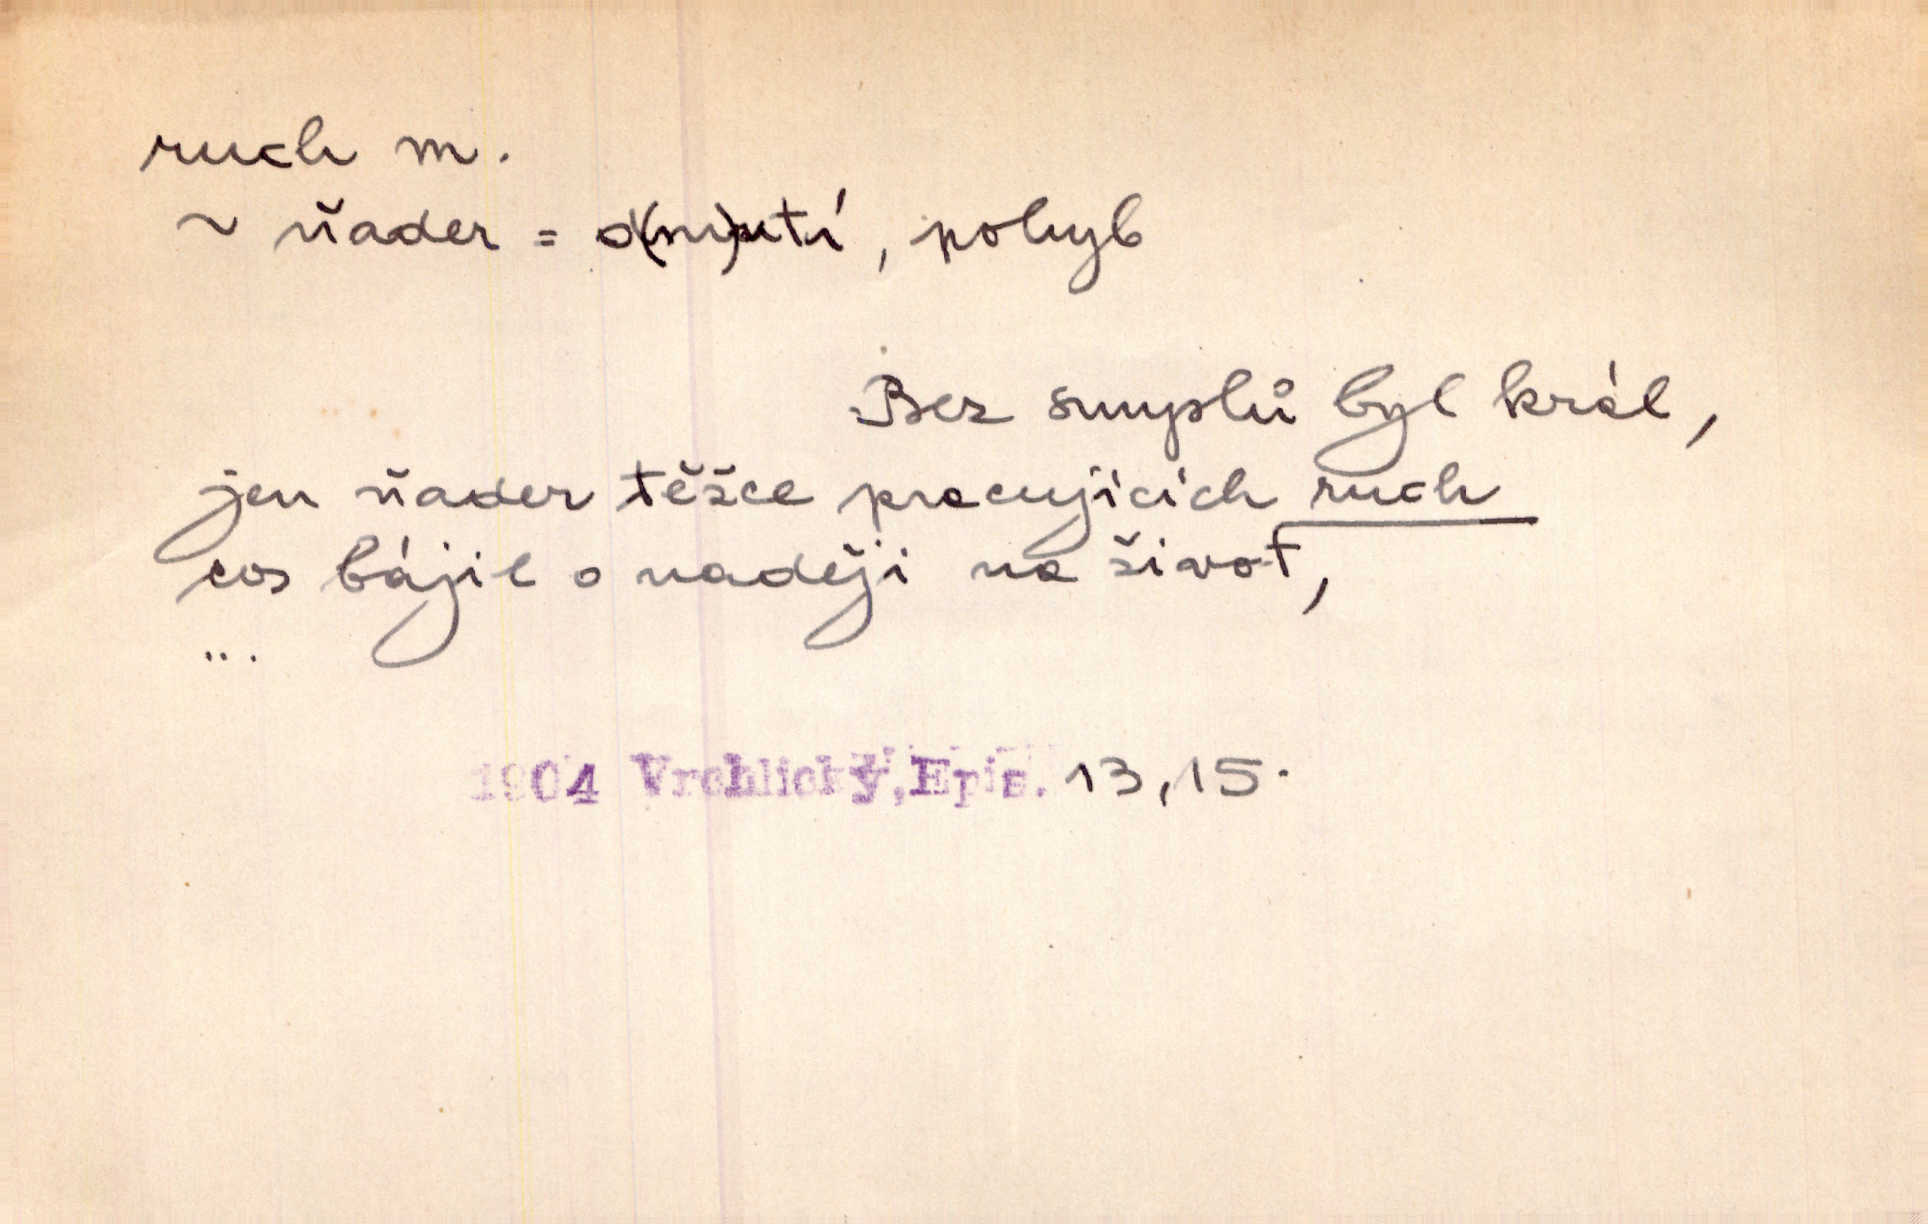 ruch m.
~ ňader = d(m)utí, pohyb
Bez smyslů byl král,
jen ňader těžce pracujících ruch
cos bájil o naději na život,
...
1904 Vrchlický, Epis. 13,15.